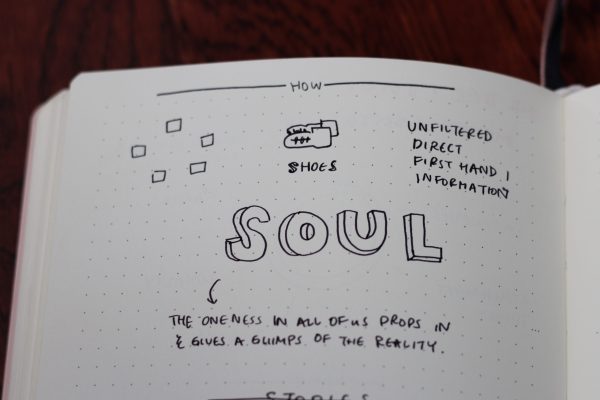 HOW
SHOES
UNFILTERED
DIRECT
FIRST HAND
INFORMATION
SOUL
THE ONENESS IN ALL OF US PROPS IN
& GIVES A GLIMPS OF THE REALITY.
STORIES